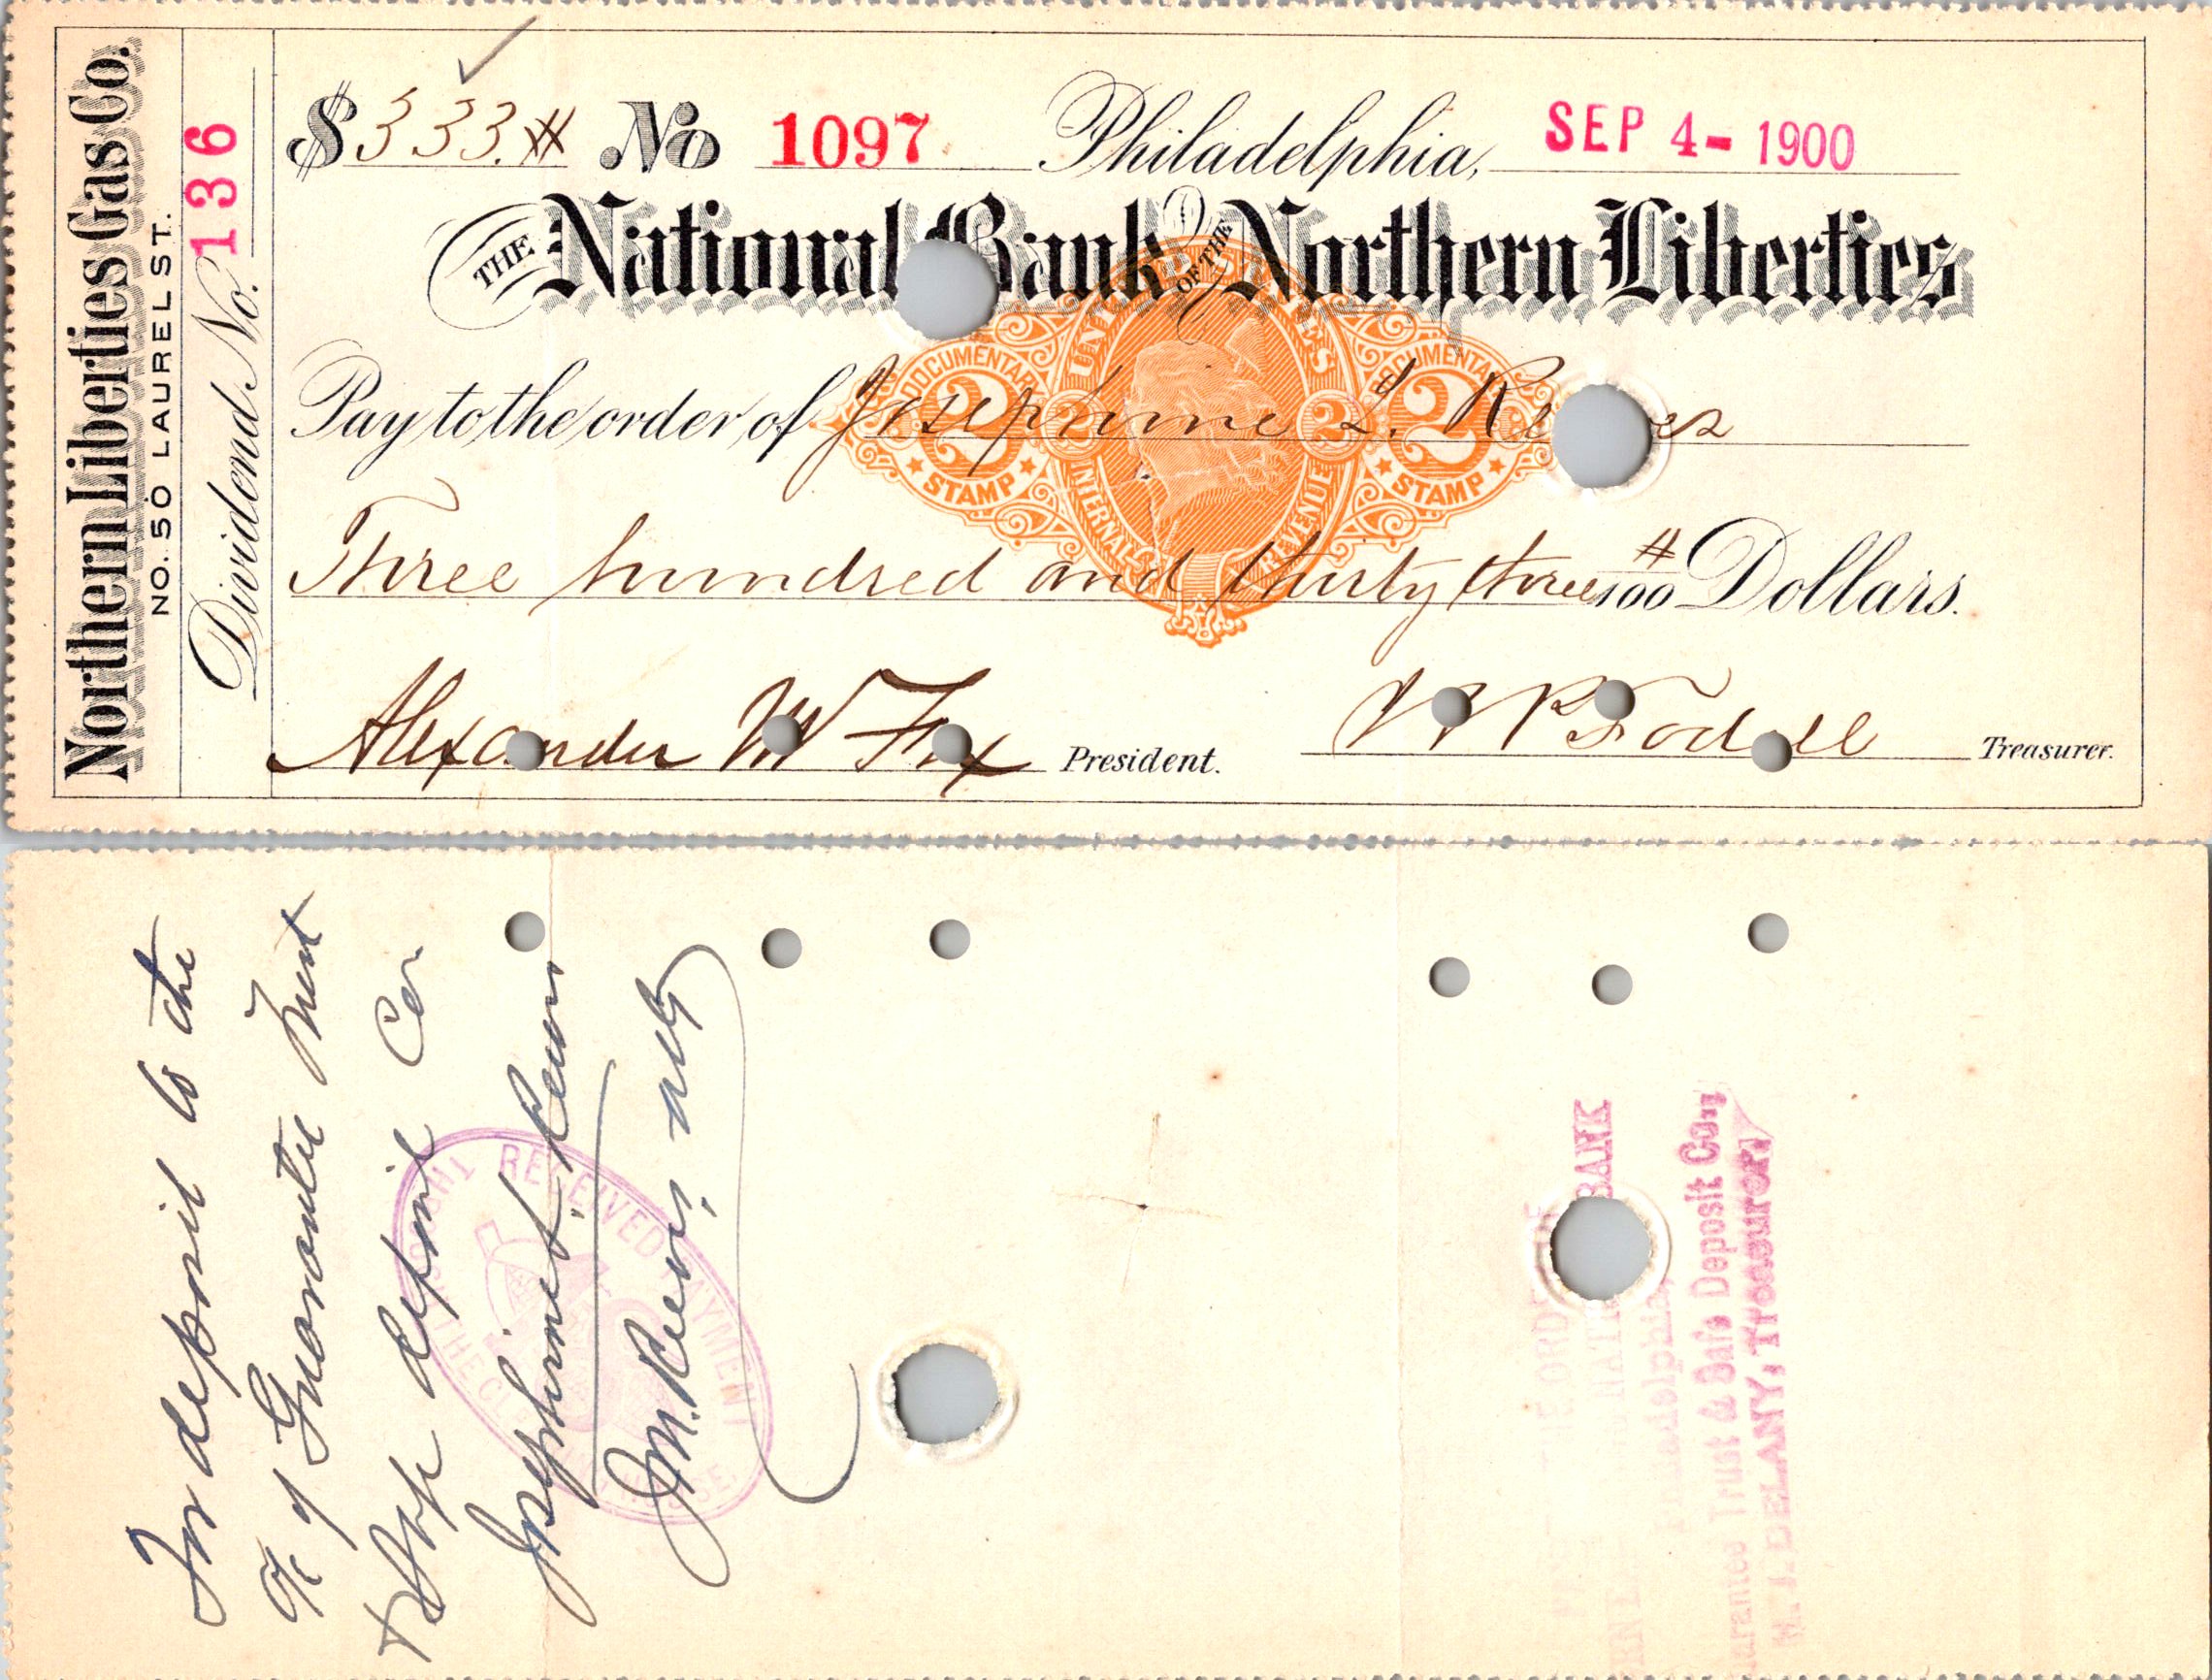 Northern Liberties Gas Co.
NO. 50 LAUREL ST.
Dividend No. 136
$333.# No 1097 Philadelphia, SEP 4- 1900
THE National Bank OF THE Northern Liberties
Pay to the order of Josephine L. Re es
UNITED STATES
DOCUMENTARY DOCUMENTARY
2 2 2 2
STAMP STAMP
INTERNAL REVENUE
Three hundred and thirty three #/100 Dollars.
Alexander W Fox President.
Treasurer.
For deposit to the
of Guarantee Trust
deposit Co
Josephine L. Reeves
J.M. Reeves atty
RECEIVED PAYMENT
THROUGH THE CLEARING HOUSE.
THE ORDER OF
BANK
Philadelphia,
Guarantee Trust & Safe Deposit Co.,
DELANY, Treasurer.